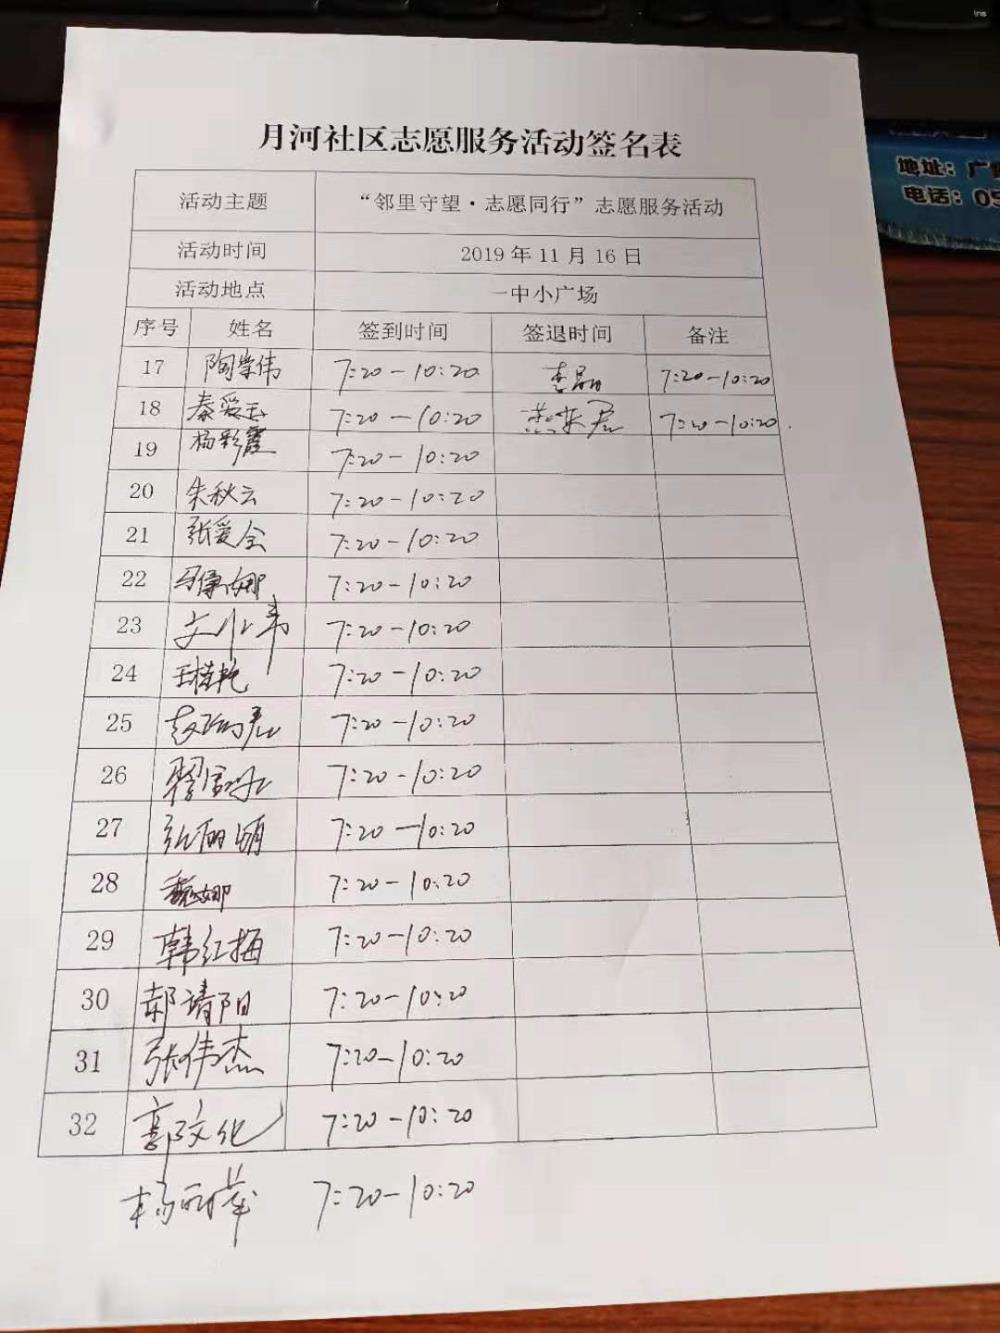 lns
地址：广
电话：05
月河社区志愿服务活动签名表
活动主题 “邻里守望·志愿同行”志愿服务活动
活动时间 2019 年 11 月 16 日
活动地点 一中小广场
序号 姓名 签到时间 签退时间 备注
17 陶崇伟 7:20-10:20 李晶 7:20-10:20
18 秦爱玉 7:20-10:20 7:20-10:20.
19 杨彩霞 7:20-10:20
20 朱秋云 7:20-10:20
21 张爱全 7:20-10:20
22 7:20-10:20
23 7:20-10:20
24 王桂艳 7:20-10:20
25 7:20-10:20
26 7:20-10:20
27 张丽娟 7:20-10:20
28 魏娜 7:20-10:20
29 韩红梅 7:20-10:20
30 郝请阳 7:20-10:20
31 张伟杰 7:20-10:20
32 郭文化 7:20-10:20
杨丽萍 7:20-10:20